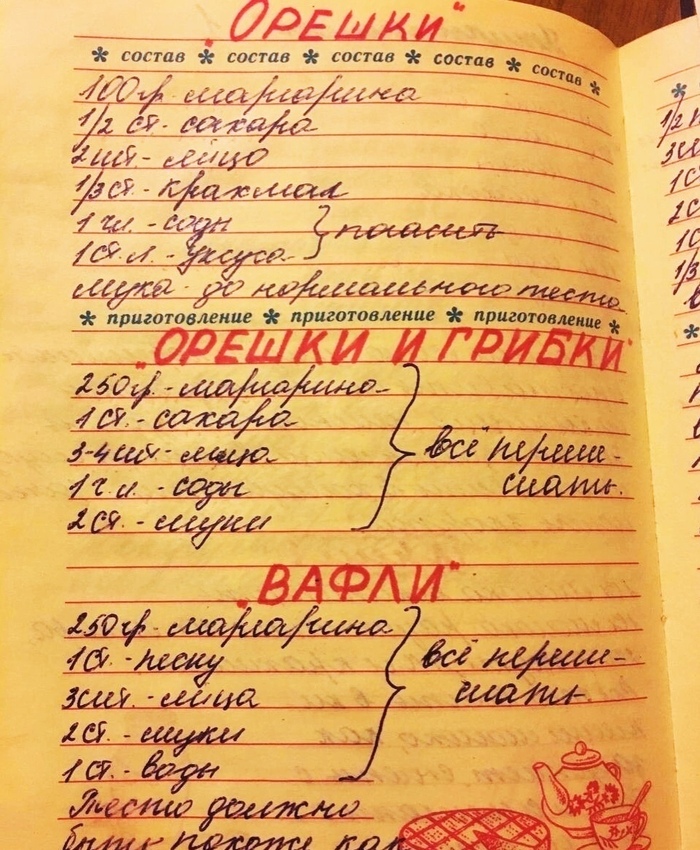 "ОРЕШКИ"
* состав * состав * состав * состав * состав *
100гр. маргарина
1/2 ст. - сахара
2шт. - яйцо
1/3 ст. - крахмал
1 ч.л. - соды } погасить
1 ст. л. - уксуса
мука - до нормального теста
* приготовление * приготовление * приготовление *
"ОРЕШКИ И ГРИБКИ"
250гр. - маргарина
1 ст. - сахара
3-4 шт. - яйца
всё переме-
1 ч.л. - соды
шать.
2 ст. - муки
"ВАФЛИ"
250гр. - маргарина
1 ст. - песку
всё переме-
3 шт. - яйца
шать.
2 ст. - муки
1 ст. - воды
Тесто должно
быть похоже как
1/2
3
1
2
1
1/3